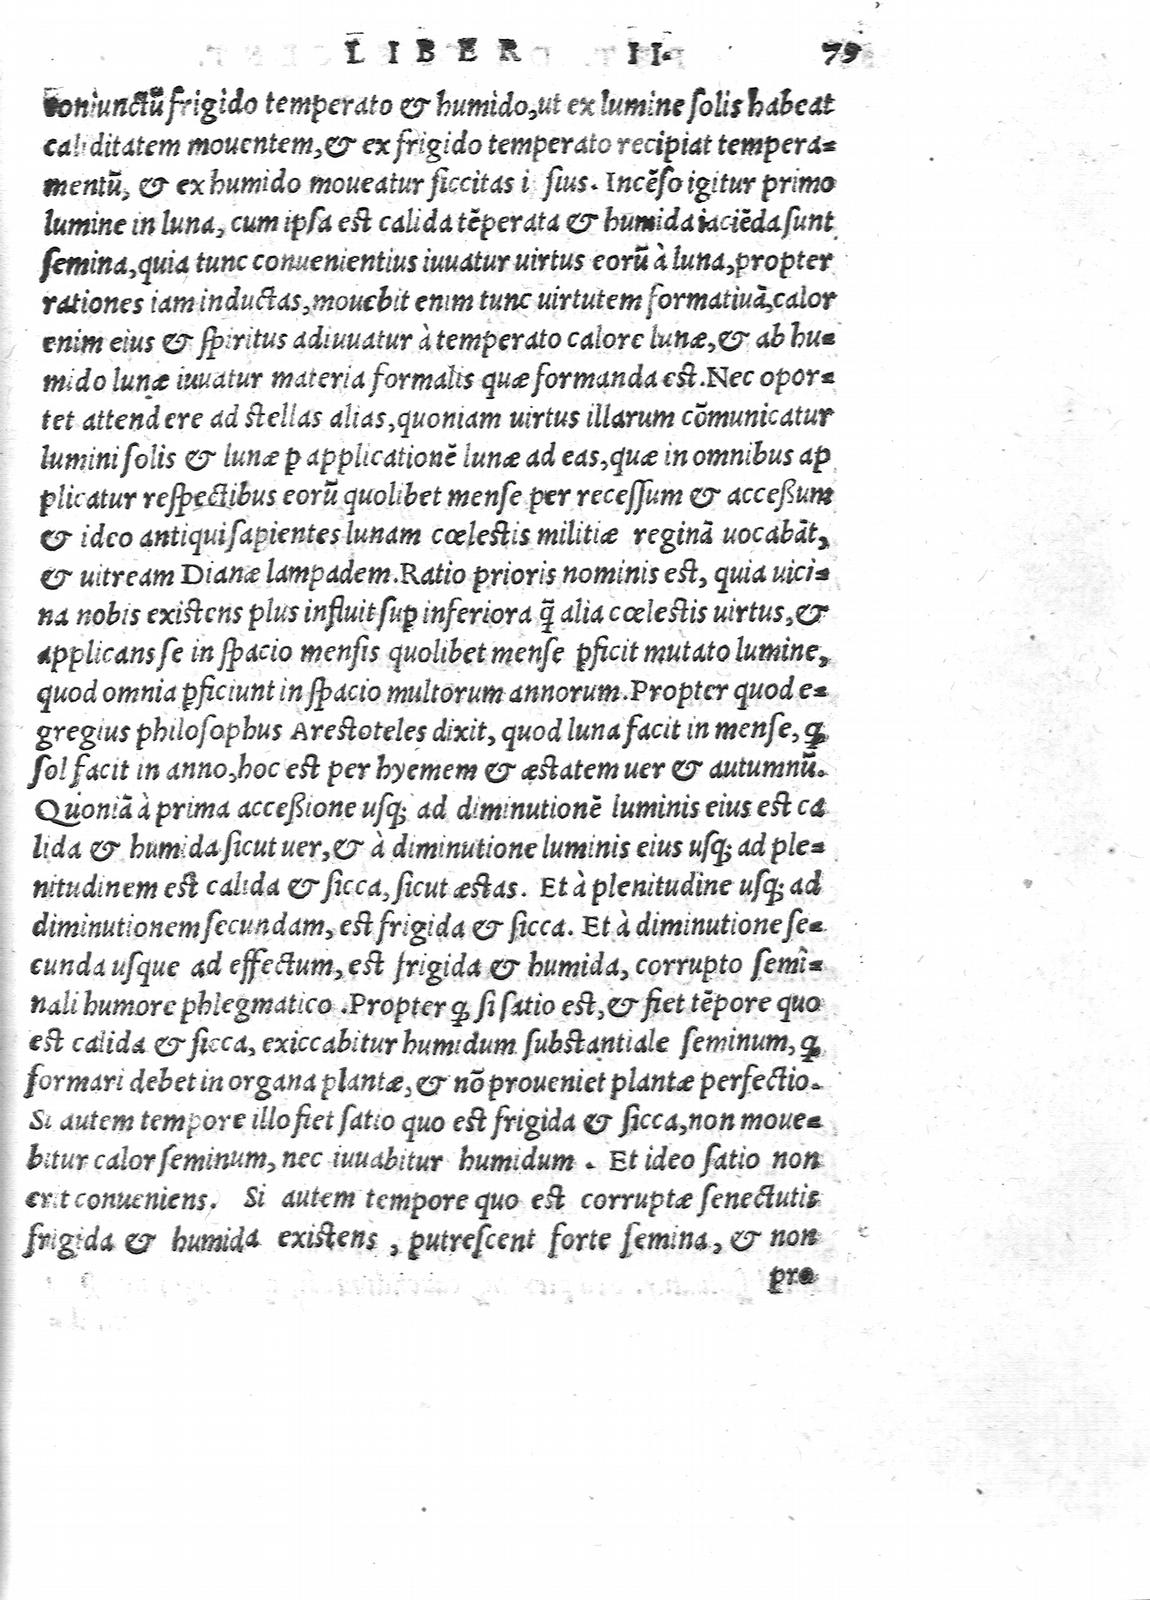 LIBER II. 79
coniunctū frigido temperato & humido, ut ex lumine ſolis habeat
caliditatem mouentem, & ex frigido temperato recipiat tempera-
mentū, & ex humido moueatur ſiccitas i ſius. Incēſo igitur primo
lumine in luna, cum ipſa est calida tēperata & humida iaciēda ſunt
ſemina, quia tunc conuenientius iuuatur uirtus eorū à luna, propter
rationes iam inductas, mouebit enim tunc uirtutem formatiuā, calor
enim eius & ſpiritus adiuuatur à temperato calore lunæ, & ab hu-
mido lunæ iuuatur materia formalis quæ formanda est. Nec opor-
tet attendere ad stellas alias, quoniam uirtus illarum cōmunicatur
lumini ſolis & lunæ ꝑ applicationē lunæ ad eas, quæ in omnibus ap
plicatur reſpectibus eorū quolibet menſe per receſſum & acceßum
& ideo antiqui ſapientes lunam cœlestis militiæ reginā uocabāt,
& uitream Dianæ lampadem. Ratio prioris nominis est, quia uici-
na nobis existens plus influit ſuꝑ inferiora q̄ alia cœlestis uirtus, &
applicans ſe in ſpacio menſis quolibet menſe ꝑficit mutato lumine,
quod omnia ꝑficiunt in ſpacio multorum annorum. Propter quod e-
gregius philoſophus Arestoteles dixit, quod luna facit in menſe, ꝙ
ſol facit in anno, hoc est per hyemem & æstatem uer & autumnū.
Quoniā à prima acceßione uſq; ad diminutionē luminis eius est ca
lida & humida ſicut uer, & à diminutione luminis eius uſq; ad ple-
nitudinem est calida & ſicca, ſicut æstas. Et à plenitudine uſq; ad
diminutionem ſecundam, est frigida & ſicca. Et à diminutione ſe-
cunda uſque ad effectum, est frigida & humida, corrupto ſemi-
nali humore phlegmatico. Propter ꝙ ſi ſatio est, & fiet tēpore quo
est calida & ſicca, exiccabitur humidum ſubstantiale ſeminum, ꝙ
formari debet in organa plantæ, & nō proueniet plantæ perfectio.
Si autem tempore illo fiet ſatio quo est frigida & ſicca, non moue-
bitur calor ſeminum, nec iuuabitur humidum. Et ideo ſatio non
erit conueniens. Si autem tempore quo est corruptæ ſenectutis
frigida & humida existens, putreſcent forte ſemina, & non
pro